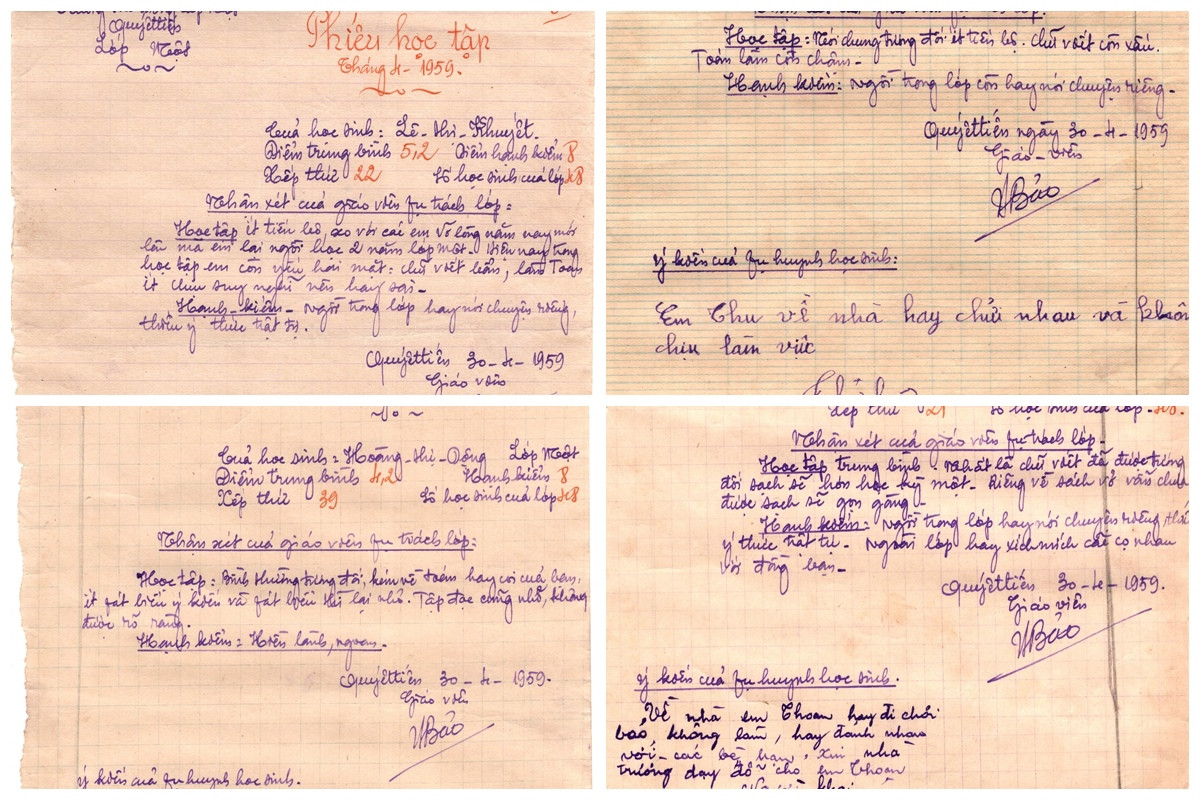 Quyếttiến
Lớp Một
Phiếu học tập
Tháng 4 - 1959.
Cuả học sinh: Lê-thị-Khuyết.
Điểm trung bình 5,2 Điểm hạnh kiểm 8
Xếp thứ 22 Số học sinh cuả lớp 48
Nhận xét cuả giáo viên fụ trách lớp:
Học tập ít tiến bộ, so với các em vỡ lòng năm nay mới
lên mà em lại ngồi học 2 năm lớp một. Hiện nay trong
học tập em còn yếu hai mặt: chữ viết bẩn, làm Toán
ít chịu suy nghĩ nên hay sai.
Hạnh-kiểm - Ngồi trong lớp hay nói chuyện riêng,
thiếu ý thức trật tự.
Quyếttiến 30-4-1959
Giáo viên
Học tập: Nói chung tương đối ít tiến bộ. chữ viết còn xấu.
Toán làm còn chậm.
Hạnh kiểm: Ngồi trong lớp còn hay nói chuyện riêng.
Quyếttiến ngày 30-4-1959
Giáo-viên
Bảo
ý kiến cuả fụ huynh học sinh:
Em Thu về nhà hay chửi nhau và khôn
chịu làm việc
Cuả học sinh: Hoàng-thị-Dông Lớp Một
Điểm trung bình 4,2 Hạnh kiểm 8
Xếp thứ 39 Số học sinh cuả lớp 48
Nhận xét cuả giáo viên fụ trách lớp:
Học tập: Bình thường tương đối, kém về toán hay coi cuả bạn,
ít fát biểu ý kiến và fát biểu thì lại nhỏ. Tập đọc cũng nhỏ, không
được rõ ràng.
Hạnh kiểm: Hiền lành, ngoan.
Quyếttiến 30-4-1959.
Giáo viên
Bảo
ý kiến cuả fụ huynh học sinh.
Xếp thứ 21 Số học sinh cuả lớp 48.
Nhận xét cuả giáo viên fụ trách lớp.
Học tập trung bình. Nhất là chữ viết đã được tương
đối sạch sẽ hơn học kỳ một. Riêng về sách vở vẫn chưa
được sạch sẽ gọn gàng.
Hạnh kiểm: Ngồi trong lớp hay nói chuyện riêng, thiếu
ý thức trật tự. Ngoài lớp hay xích mích cãi cọ nhau
với bạn.
Quyếttiến 30-4-1959.
Giáo viên
Bảo
ý kiến cuả fụ huynh học sinh.
Về nhà em Thoan hay đi chơi
bao, không làm, hay đánh nhau
với các bè bạn, xin nhà
trường dạy đỗ cho em Thoan